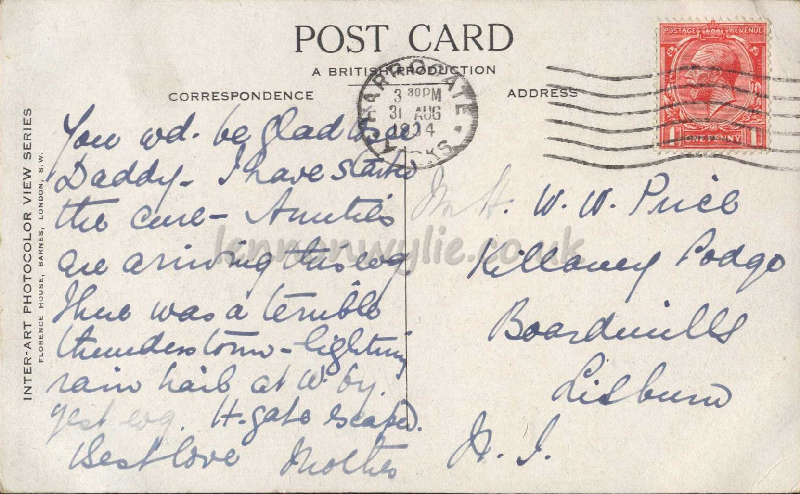 POST CARD
A BRITISH PRODUCTION
CORRESPONDENCE
ADDRESS
HARROGATE
3 30PM
31 AUG
YORKS
POSTAGE REVENUE
1 ONE PENNY 1
INTER-ART PHOTOCOLOR VIEW SERIES
FLORENCE HOUSE, BARNES, LONDON, S.W.
You wd. be glad to see
Daddy - I have started
the cure - Aunties
are arriving this evg
There was a terrible
thunderstorm - lightning
rain hail at W. by.
yest evg. H-gate escaped.
Best love Mother
W. W. Price
Killaney Lodge
Boardmills
Lisburn
N. I.
lennonwylie.co.uk